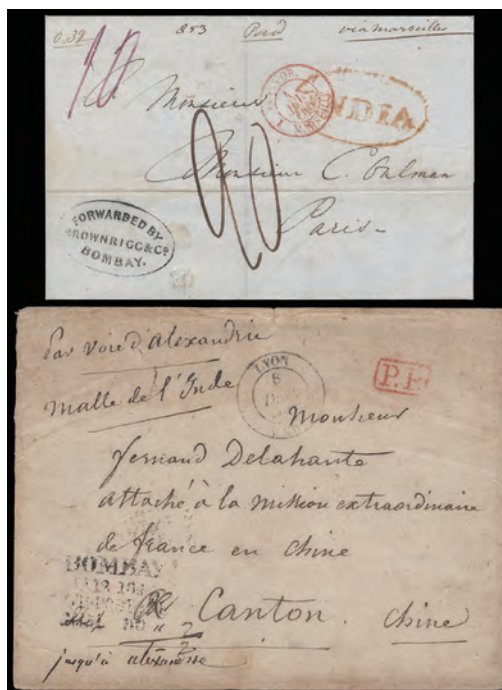 0.32 853 Paid via marseilles
10
A Monsieur
INDIA
Monsieur C. Oulman
90
Paris
FORWARDED BY
BROWNRIGG & Co
BOMBAY.
Par voie d'Alexandrie
LYON
8
P.P.
malle de l'Inde
Monsieur
fernand Delahante
attaché à la mission extraordinaire
de france en chine
BOMBAY
Canton. Chine
jusqu'à alexandrie